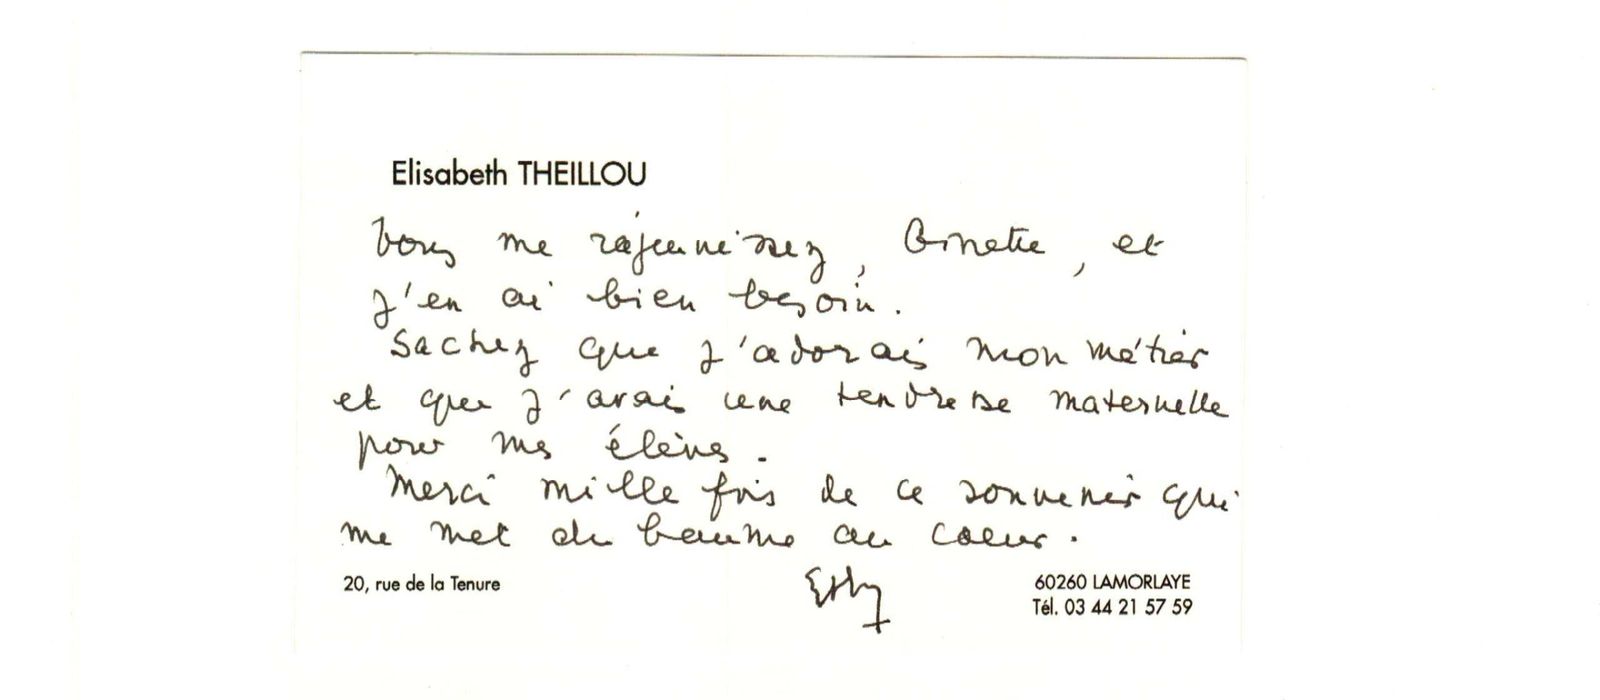 Elisabeth THEILLOU
Vous me rajeunissez, Ginette, et
j'en ai bien besoin.
Sachez que j'adorais mon métier
et que j'avais une tendresse maternelle
pour mes élèves.
Merci mille fois de ce souvenir qui
me met du baume au coeur.
20, rue de la Tenure
60260 LAMORLAYE
Tél. 03 44 21 57 59